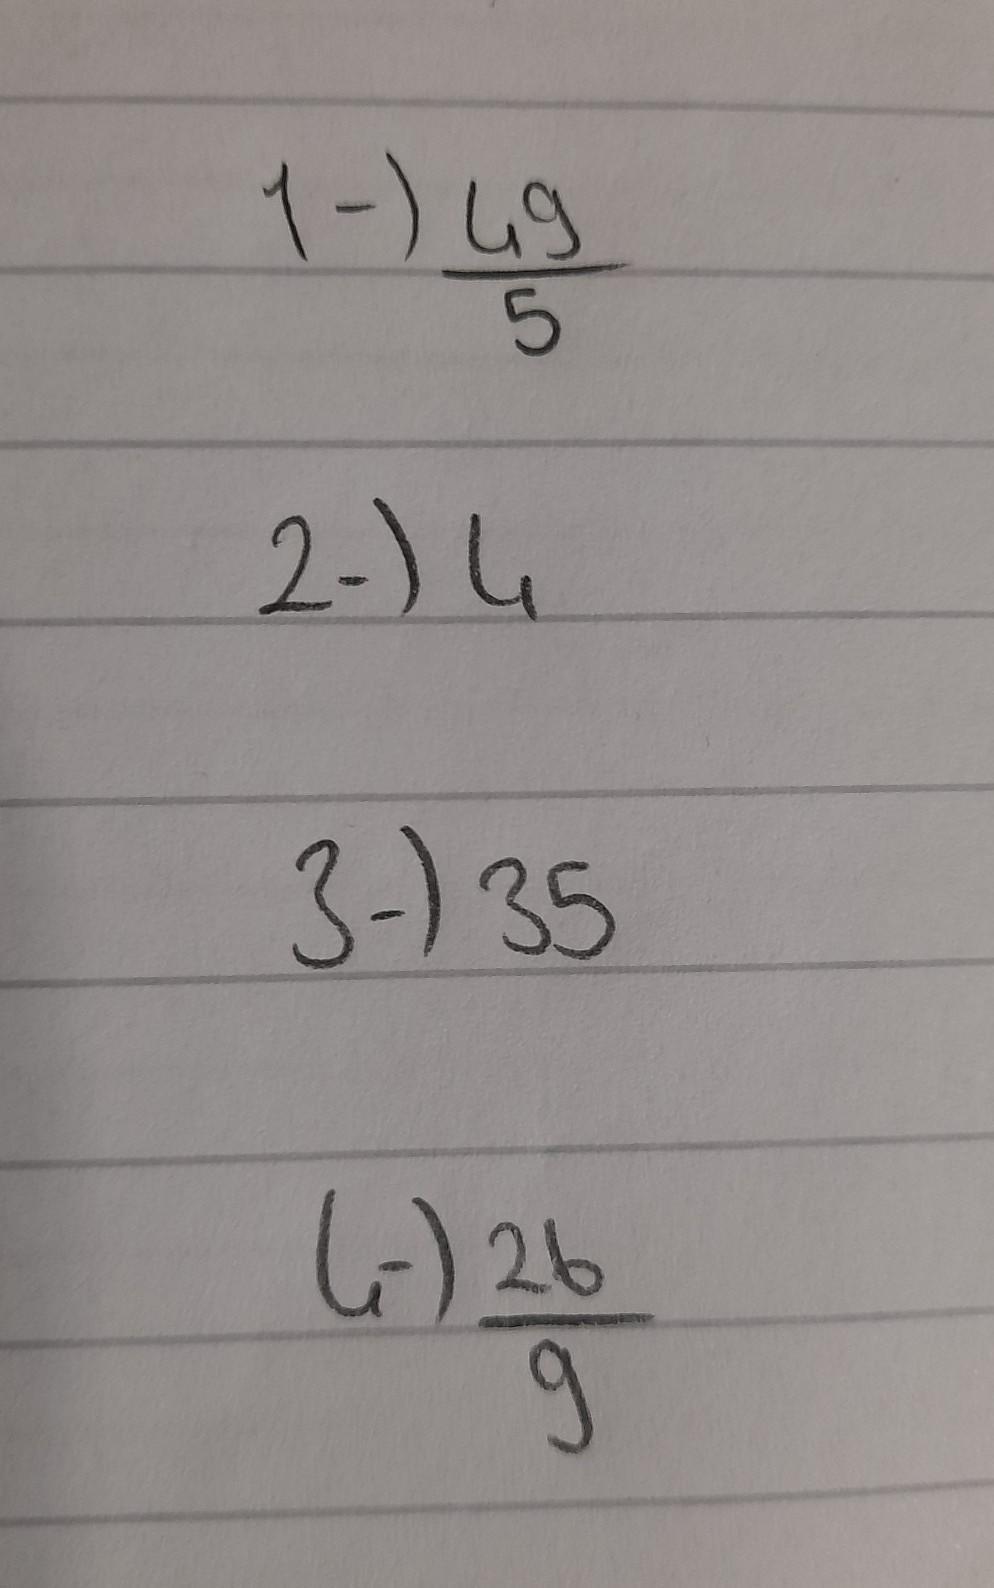 1-) 49/5
2-) 4
3-) 35
4-) 26/9